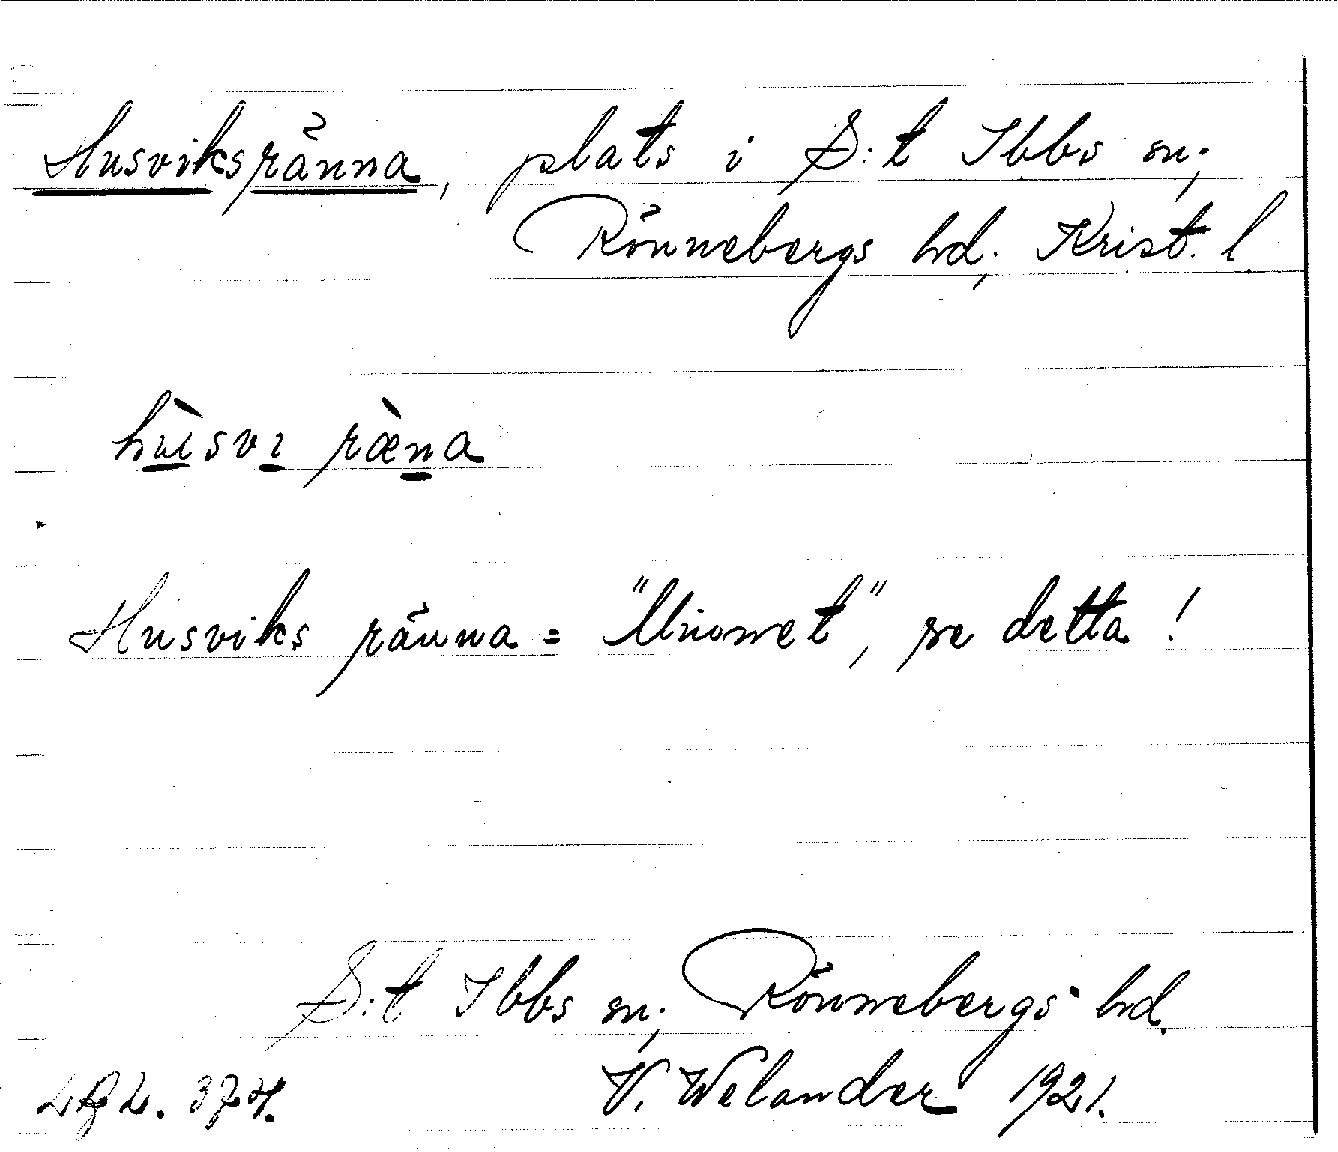 Husviksränna, plats i S:t Ibbs sn;
Rönnebergs hd; Krist. l
hùisvi ræ̀na
Husviks ränna = "Uniowet", se detta!
S:t Ibbs sn; Rönnebergs hd.
V. Welander 1921.